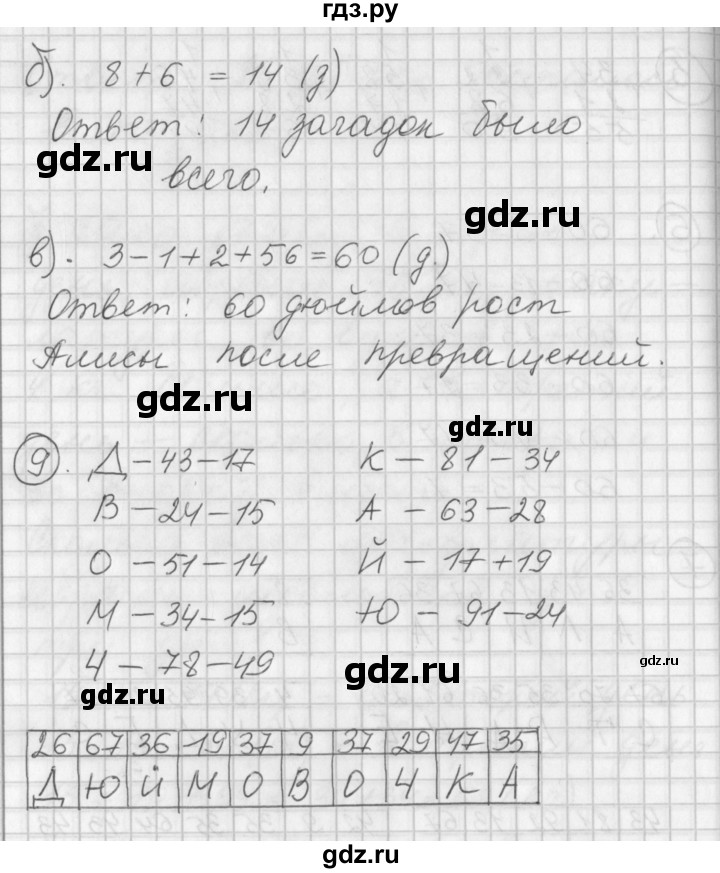 гдз.ру
б). 8 + 6 = 14 (з)
Ответ: 14 загадок было
gdz.ru
всего.
gdz.ru
в). 3 - 1 + 2 + 56 = 60 (д.)
Ответ: 60 дюймов рост
Алисы после превращений.
gdz.ru
gdz.ru
9. Д - 43 - 17 К - 81 - 34
В - 24 - 15 А - 63 - 28
О - 51 - 14 Й - 17 + 19
М - 34 - 15 Ю - 91 - 24
Ч - 78 - 49
gdz.ru
gdz.ru
gdz.ru
26 67 36 19 37 9 37 29 47 35
Д Ю Й М О В О Ч К А
gdz.ru